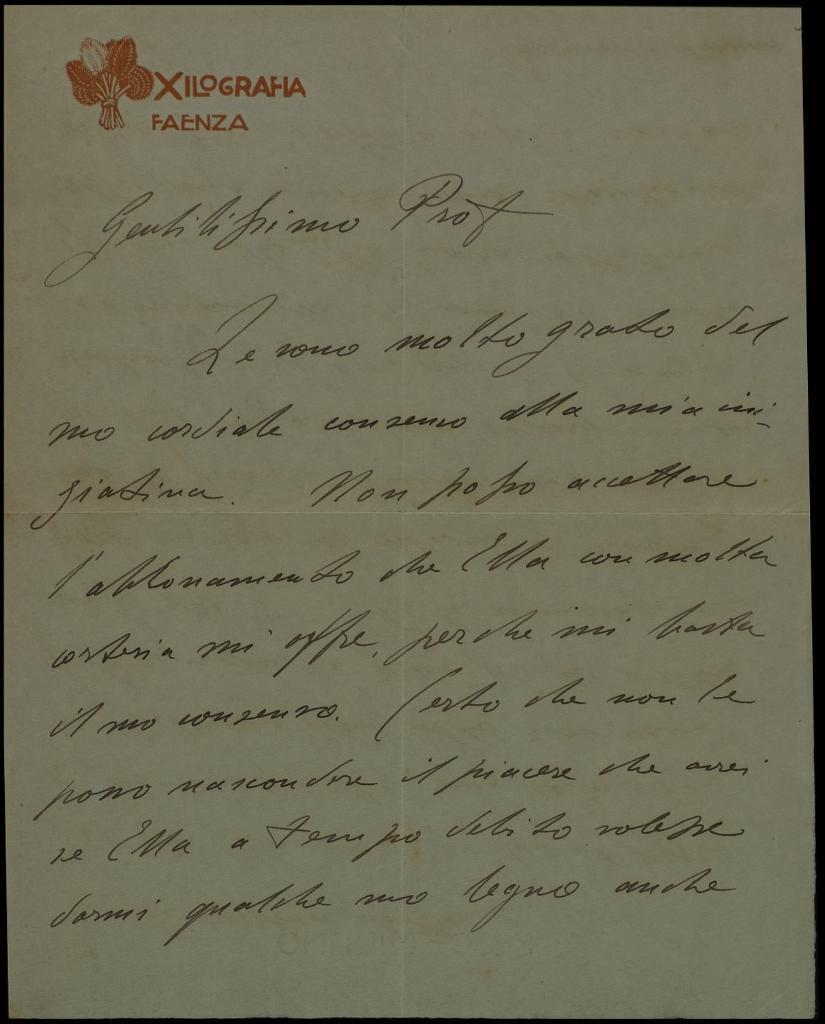 XILOGRAFIA
FAENZA
Gentilissimo Prof
Le sono molto grato del
suo cordiale consenso alla mia ini-
ziativa. Non posso accettare
l'abbonamento che Ella con molta
cortesia mi offre, perche mi basta
il suo consenso. Certo che non le
posso nascondere il piacere che avrei
se Ella a tempo debito volesse
darmi qualche suo legno anche